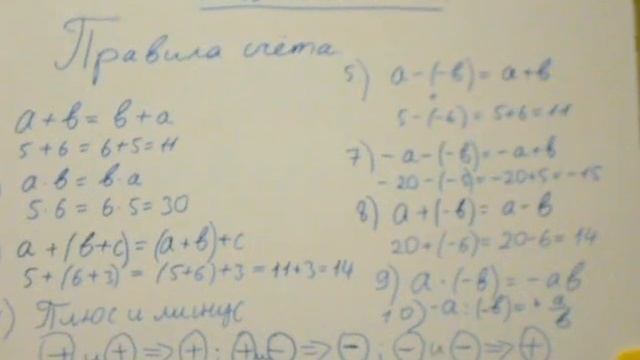 Правила счёта
a+b=b+a
5+6=6+5=11
a·b=b·a
5·6=6·5=30
a+(b+c)=(a+b)+c
5+(6+3)=(5+6)+3=11+3=14
) Плюс и минус
⊕ и ⊕ ⇒ ⊕; ⊕ и ⊖ ⇒ ⊖; ⊖ и ⊖ ⇒ ⊕
5) a-(-b)=a+b
5-(-6)=5+6=11
7) -a-(-b)=-a+b
-20-(-5)=-20+5=-15
8) a+(-b)=a-b
20+(-6)=20-6=14
9) a·(-b)=-ab
10) -a:(-b)=+a/b